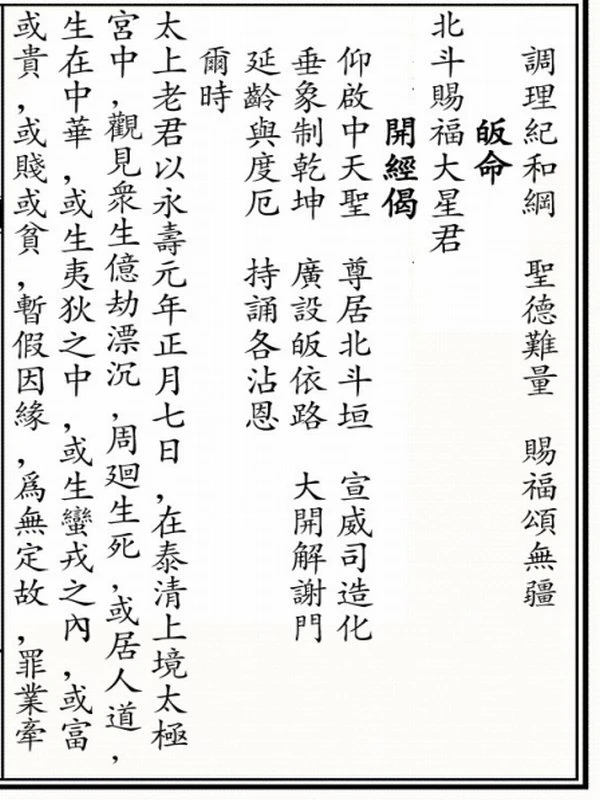 調理紀和綱　聖德難量　賜福頌無疆
皈命
北斗賜福大星君
開經偈
仰啟中天聖　尊居北斗垣　宣威司造化
垂象制乾坤　廣設皈依路　大開解謝門
延齡與度厄　持誦各沾恩
爾時
太上老君以永壽元年正月七日，在泰清上境太極
宮中，觀見衆生億劫漂沉，周迴生死，或居人道，
生在中華，或生夷狄之中，或生蠻戎之內，或富
或貴，或賤或貧，暫假因緣，爲無定故，罪業牽